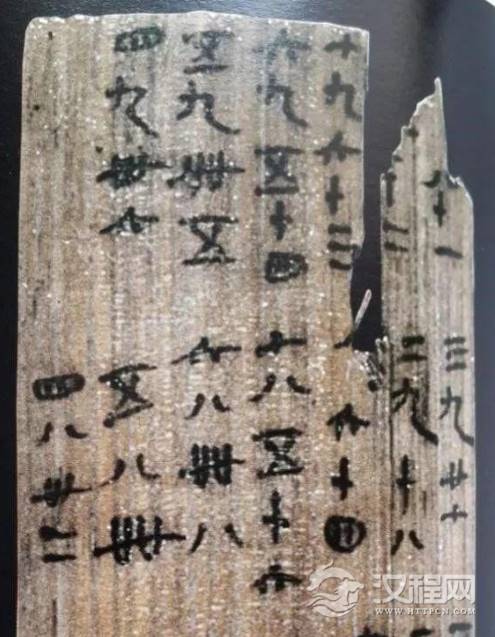 八十一
十二
七九六十三
六九五十四
五九卌五
四九卅六
三九廿七
二九十八
六十四
七八五十六
六八卌八
五八卌
四八卅二
汉程网
WWW.HTTPCN.COM